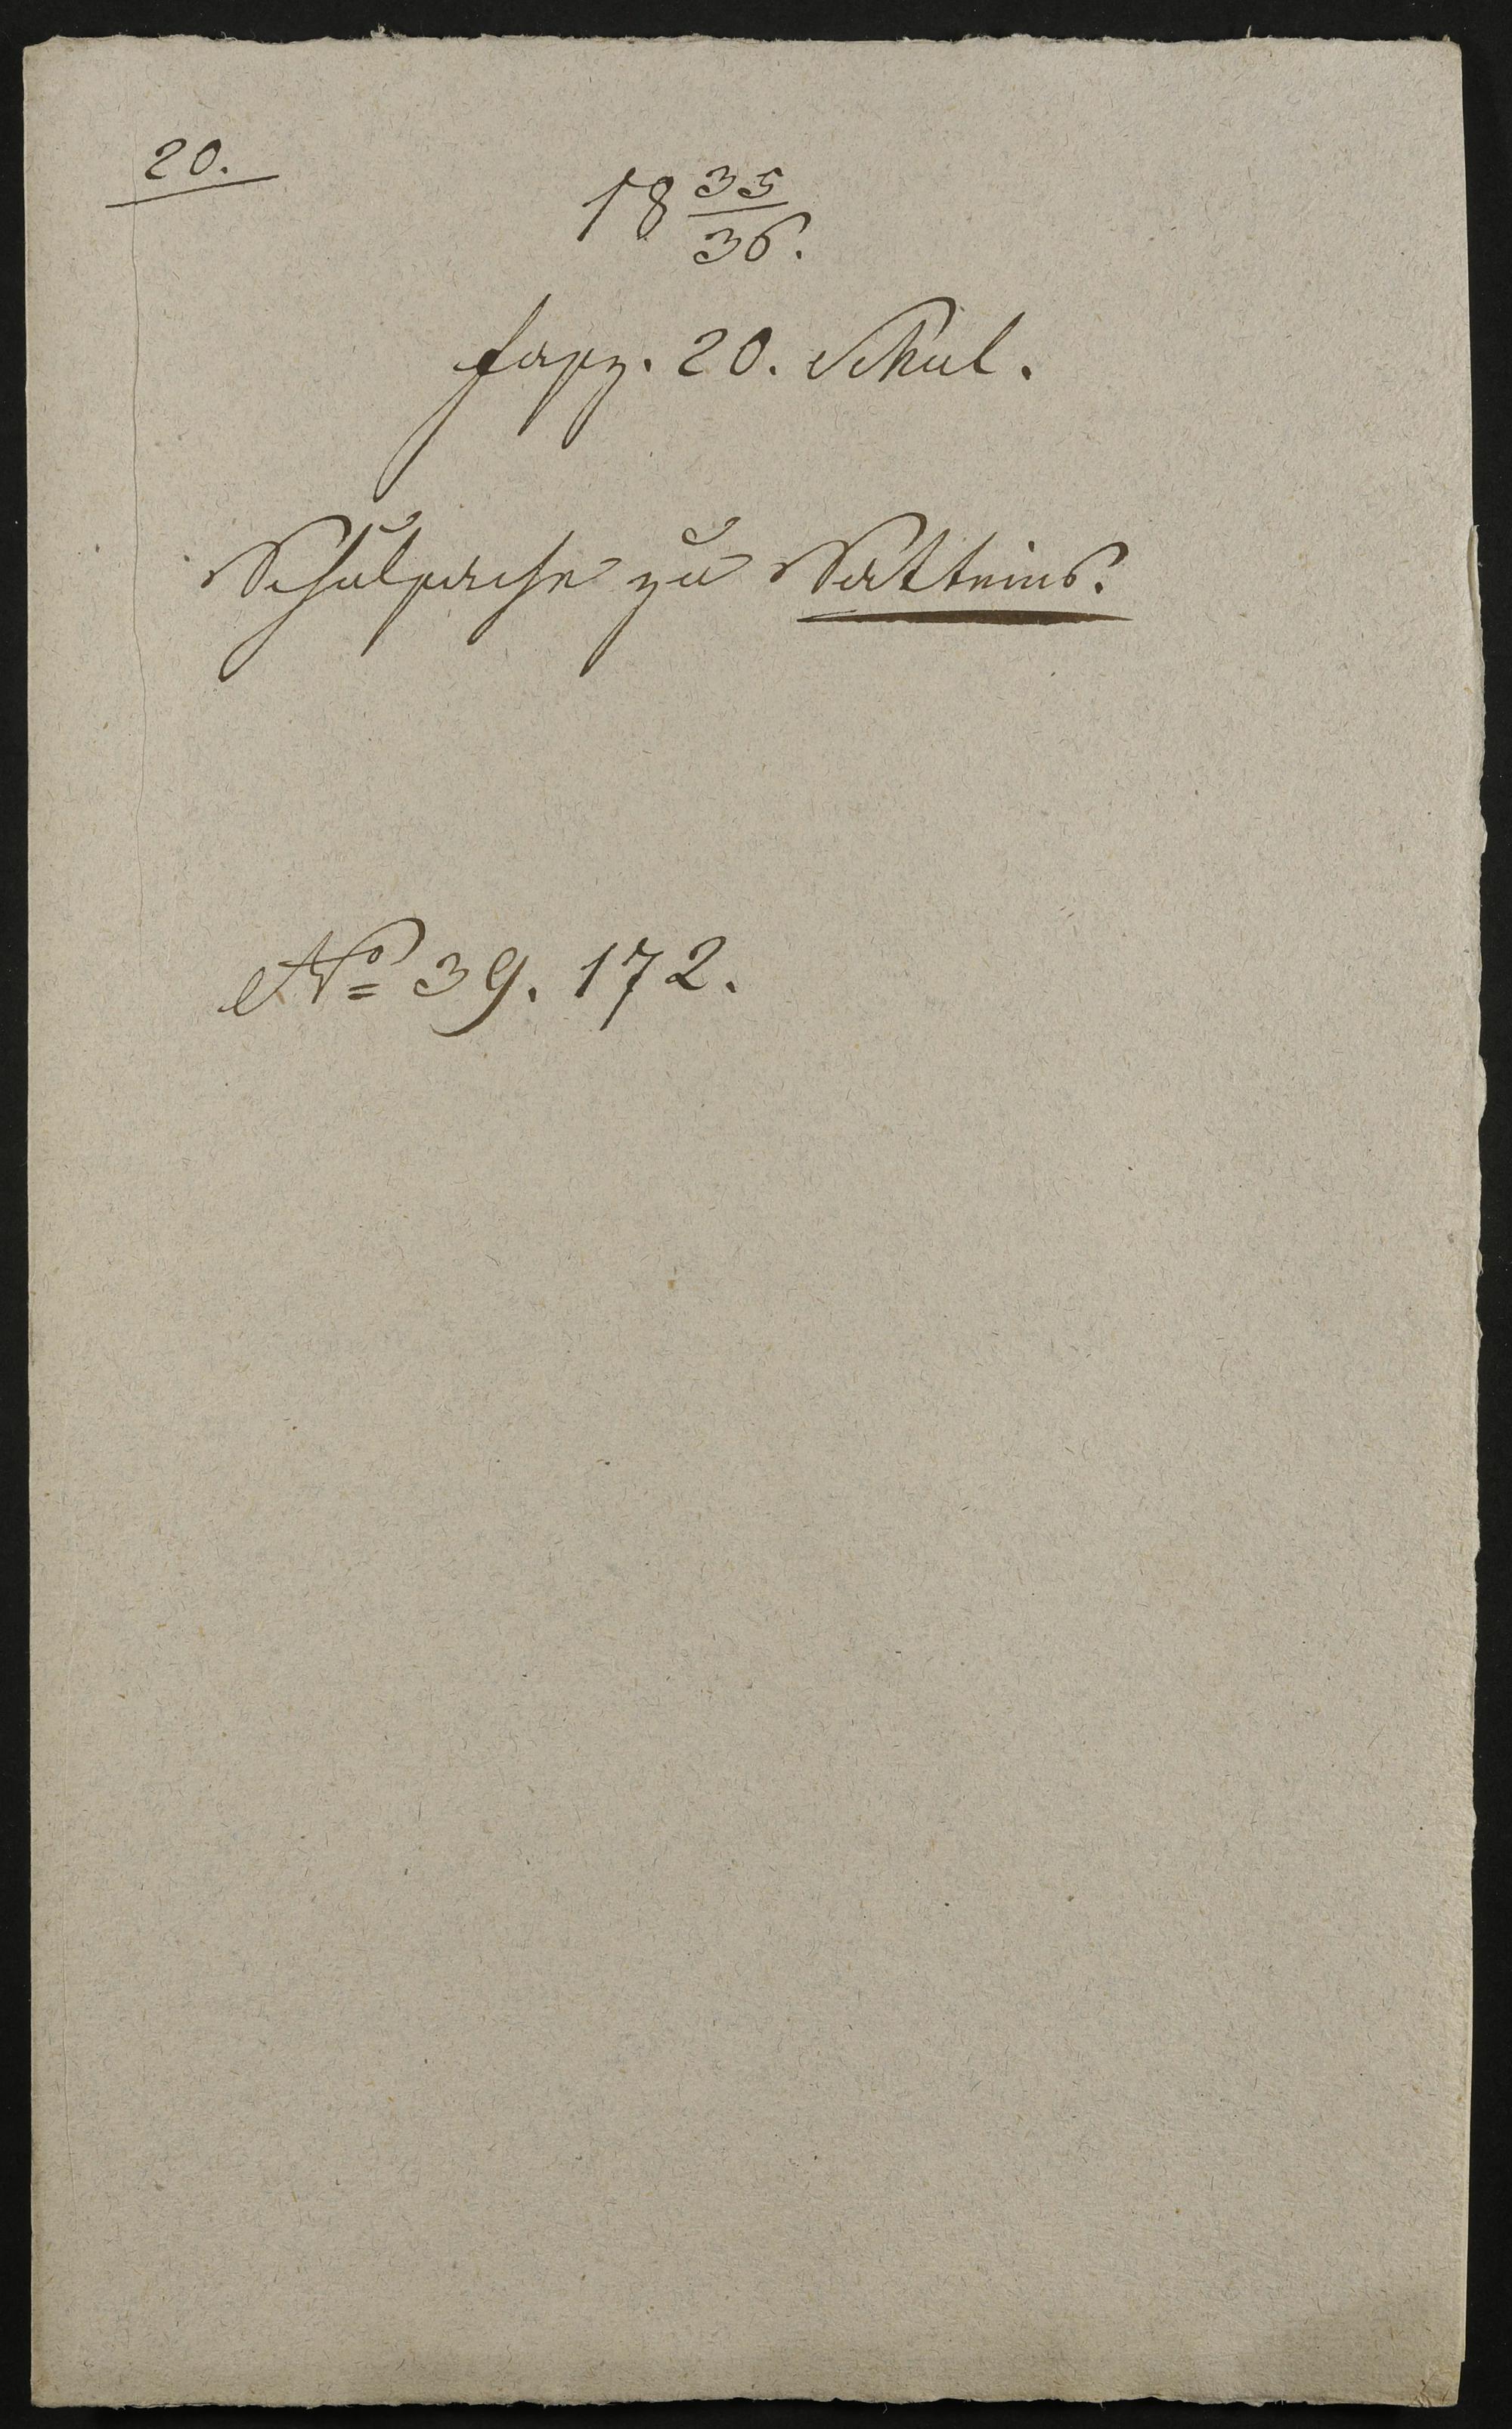 20.
18 35/36.
fasz. 20. Schul.
Schulsache zu Satteins.
No 39. 172.